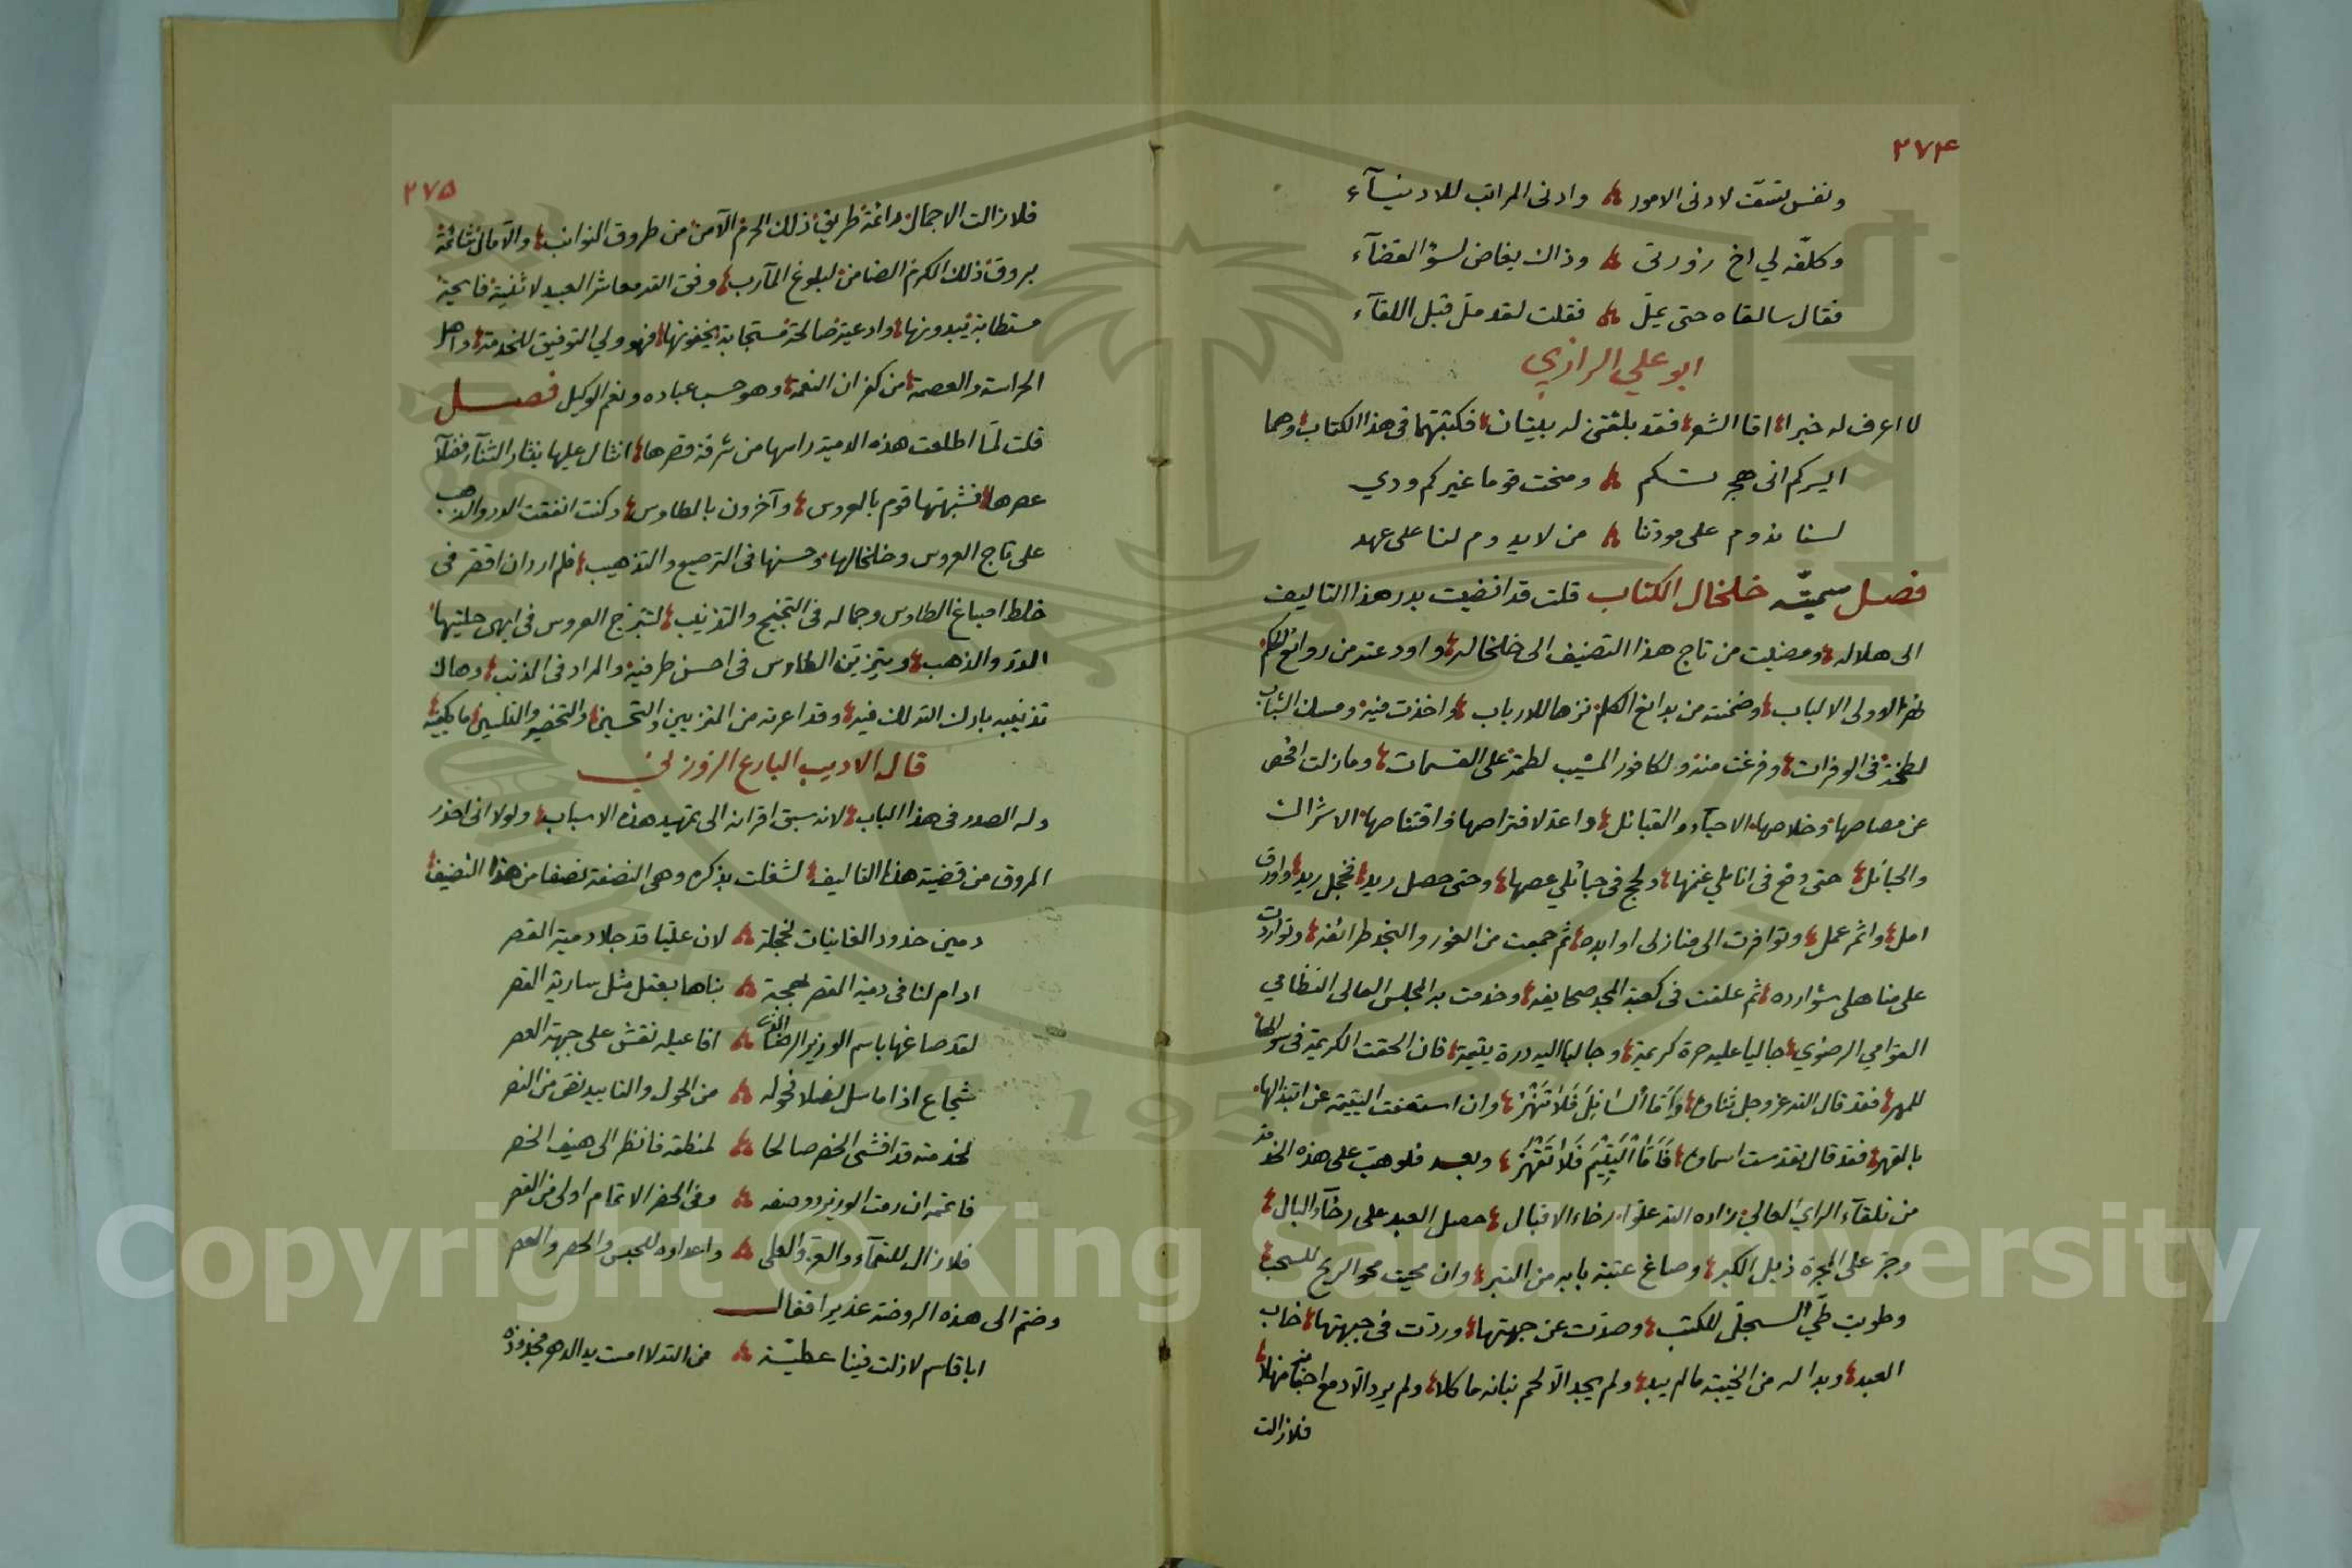 ٢٧٤
ونفس تسفّت لادنى الامور وادنى المراتب للادنيآء
وكلفه لي اخ زورتى وذاك يفاض لسؤ القضآء
فقال سالقاه حتى يملّ فقلت لقد ملّ قبل اللقآء
ابو علي الرازي
لا اعرف له خبرا اما الشعر فقد بلغنى له بيتان فكتبتهما فى هذا الكتاب وهما
اليركم انى هجرتكم ومنحت قوما غيركم ودي
لسنا ندوم على مودتنا من لا يدوم لنا على عهد
فصل سميته خلخال الكتاب قلت قد افضيت ببدر هذا التاليف
الى هلاله ومضيت من تاج هذا التصنيف الى خلخاله واودعته من روائع الحكم
لاولى الالباب وضمنته من بدائع الكلم نزها للارباب واخذت فيه ومسك الشباب
لطخة فى الوفرات وفرغت منه والكافور المشيب لطمة على القسمات وما زلت افحص
عن مصاصها وخلاصها الاحيآء والقبائل واعد لافتراصها واقتناصها الاشراك
والحبائل حتى وقع فى انا ملي غنمها ولج فى حبائلي عصمها وحتى حصل ريد فنجل ريد واورق
امل واثمر عمل وتوافرت الى منازلى اوابده ثم جمعت من الغور والنجد طرائفه وتواردت
على مناهلى شوارده ثم علقت فى كعبة المجد صحايفه وخدمت به المجلس العالى النظامي
القوامي الرضوي جاليا عليه حرة كريمة وجالبا اليه درة يتيمة فان الحفت الكريمة فى سؤالها
للمهر فقد قال الله عز وجل ثناؤه وَاَمَّا السَّائِلَ فَلاَ تَنْهَرْ وان استعفت اليتيمة عن ابتذالها
بالقهر فقد قال تقدست اسماؤه فَاَمَّا الْيَتِيْمَ فَلاَ تَقْهَرْ وبعد فلو هبت على هذه الخدمة
من تلقآء الراي العالي زاده الله علوا رخاء الاقبال حصل العبد على رخآء البال
وجر على المجرة ذيل الكبر وصاغ عتبة بابه من التبر وان محيت محو الريح للسحب
وطويت طي السجل للكتب وصدّت عن جهتها وردّت فى جبهتها خاب
العبد وبدا له من الخيبة ما لم يبد ولم يجد الا لحم بنانه ماكلا ولم يرد الا دمع اجفانه منهلا
فلا زالت
٢٧٥
فلا زالت الاجمال دائمة طريق ذلك الحرم الآمن من طروق النوائب والآمال شائمة
بروق ذلك الكرم الضامن لبلوغ المآرب وفق الله معاشر العبيد لاثنية فايحة
مستطابة يبدونها وادعية صالحة مستجابة يخفونها فهو ولي التوفيق للخدمة واهل
الحراسة والعصمة من كفران النعمة وهو حسب عباده ونعم الوكيل فصل
قلت لمّا اطلعت هذه الدمية راسها من شرفة قصرها انثال عليها نثار الثنآء فضلآ
عصرها فشبهتها قوم بالعروس وآخرون بالطاوس وكنت انفقت الدر والذهب
على تاج العروس وخلخالها وحسنها فى الترصيع والتذهيب فلم ار دان اقصر فى
خلط اصباغ الطاوس وجماله فى التجنيح والتذنيب لتبرج العروس فى ابهى حليتها
الدر والذهب ويتزين الطاوس فى احسن طرفيه والمراد فى الذنب وهاك
تذنيبه بارك الله لك فيه وقد اعرته من التزيين والتحسين والتخضير والتلسين ما يكفيه
قال الاديب البارع الزوزني
وله الصدر فى هذا الباب لانه سبق اقرانه الى تمهيد هذه الاسباب ولولا انى احذر
المروق من قضية هذا التاليف لشغلت بذكره وهى النصفة نصفا من هذا التصنيف
دمين خدود الغانيات لخجلة لان عليا قد جلا دمية القصر
ادام لنا فى دمية القصر بهجة بناها بعقل مثل سارية القصر
لقد صاغها باسم الوزير الرضا الذى افاعيله نقش على جبهة العصر
شجاع اذا ما سل نصلا فحوله من الحول والتاييد نقش من النصر
لخدمته قد افشى الخصر صالحا لمنطقه فانظر الى هيف الخصر
فاتمم ان رمت الوزير ووصفه وفى الحصر الاتمام اولى من القصر
فلا زال للنعمآء والعز والعلى واعداوه للحبس والحصر والعصر
وضم الى هذه الروضة غديرا فقال
ابا قاسم لا زلت فينا عطيّة من الله لا امست يد الدهر مجذوذه